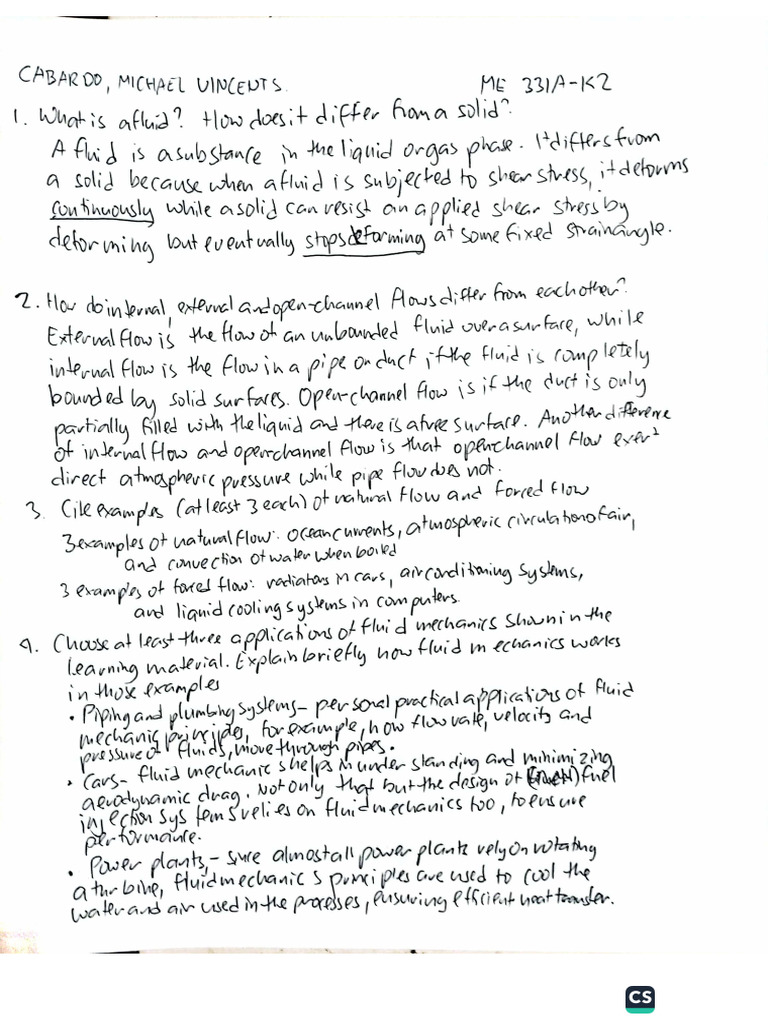 CABARDO, MICHAEL VINCENT S. ME 331A-K2
1. What is a fluid? How does it differ from a solid?
A fluid is a substance in the liquid or gas phase. It differs from
a solid because when a fluid is subjected to shear stress, it deforms
continuously while a solid can resist an applied shear stress by
deforming but eventually stops deforming at some fixed strain angle.
2. How do internal, external and open-channel flows differ from each other?
External flow is the flow of an unbounded fluid over a surface, while
internal flow is the flow in a pipe or duct if the fluid is completely
bounded by solid surfaces. Open-channel flow is if the duct is only
partially filled with the liquid and there is a free surface. Another difference
of internal flow and open-channel flow is that open-channel flow exert
direct atmospheric pressure while pipe flow does not.
3. Cite examples (at least 3 each) of natural flow and forced flow
3 examples of natural flow: ocean currents, atmospheric circulation of air,
and convection of water when boiled
3 examples of forced flow: radiators in cars, air conditioning systems,
and liquid cooling systems in computers.
4. Choose at least three applications of fluid mechanics shown in the
learning material. Explain briefly how fluid mechanics works
in those examples
• Piping and plumbing systems - personal practical applications of fluid
mechanic principles, for example, how flow rate, velocity and
pressure of fluids, move through pipes.
• Cars - fluid mechanics helps in understanding and minimizing
aerodynamic drag. Not only that but the design of fuel
injection systems relies on fluid mechanics too, to ensure
performance.
• Power plants, - since almost all power plants rely on rotating
a turbine, fluid mechanics principles are used to cool the
water and air used in the processes, ensuring efficient heat transfer.
CS